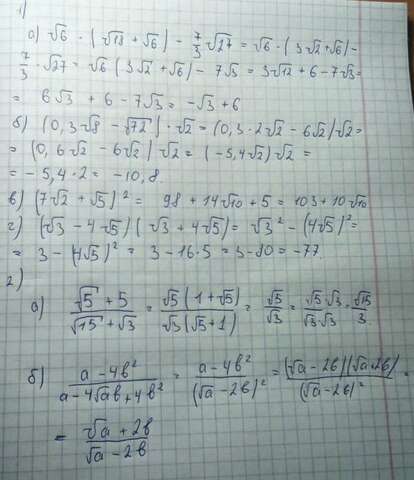 1)
а) √6 · (√18 + √6) − 7/3 √27 = √6 · (3√2 + √6) −
7/3 · √27 = √6 (3√2 + √6) − 7√3 = 3√12 + 6 − 7√3 =
= 6√3 + 6 − 7√3 = −√3 + 6
б) (0,3√8 − √72) · √2 = (0,3 · 2√2 − 6√2) √2 =
= (0,6√2 − 6√2) √2 = (−5,4√2) √2 =
= −5,4 · 2 = −10,8.
в) (7√2 + √5)² = 98 + 14√10 + 5 = 103 + 10√10
г) (√3 − 4√5) (√3 + 4√5) = √3² − (4√5)² =
= 3 − (4√5)² = 3 − 16·5 = 3 − 80 = −77.
2)
а) (√5 + 5)/(√15 + √3) = √5(1 + √5)/√3(√5 + 1) = √5/√3 = √5 √3/√3 √3 = √15/3.
б) (a − 4b²)/(a − 4√ab + 4b²) = (a − 4b²)/(√a − 2b)² = (√a − 2b)(√a + 2b)/(√a − 2b)² =
= (√a + 2b)/(√a − 2b)